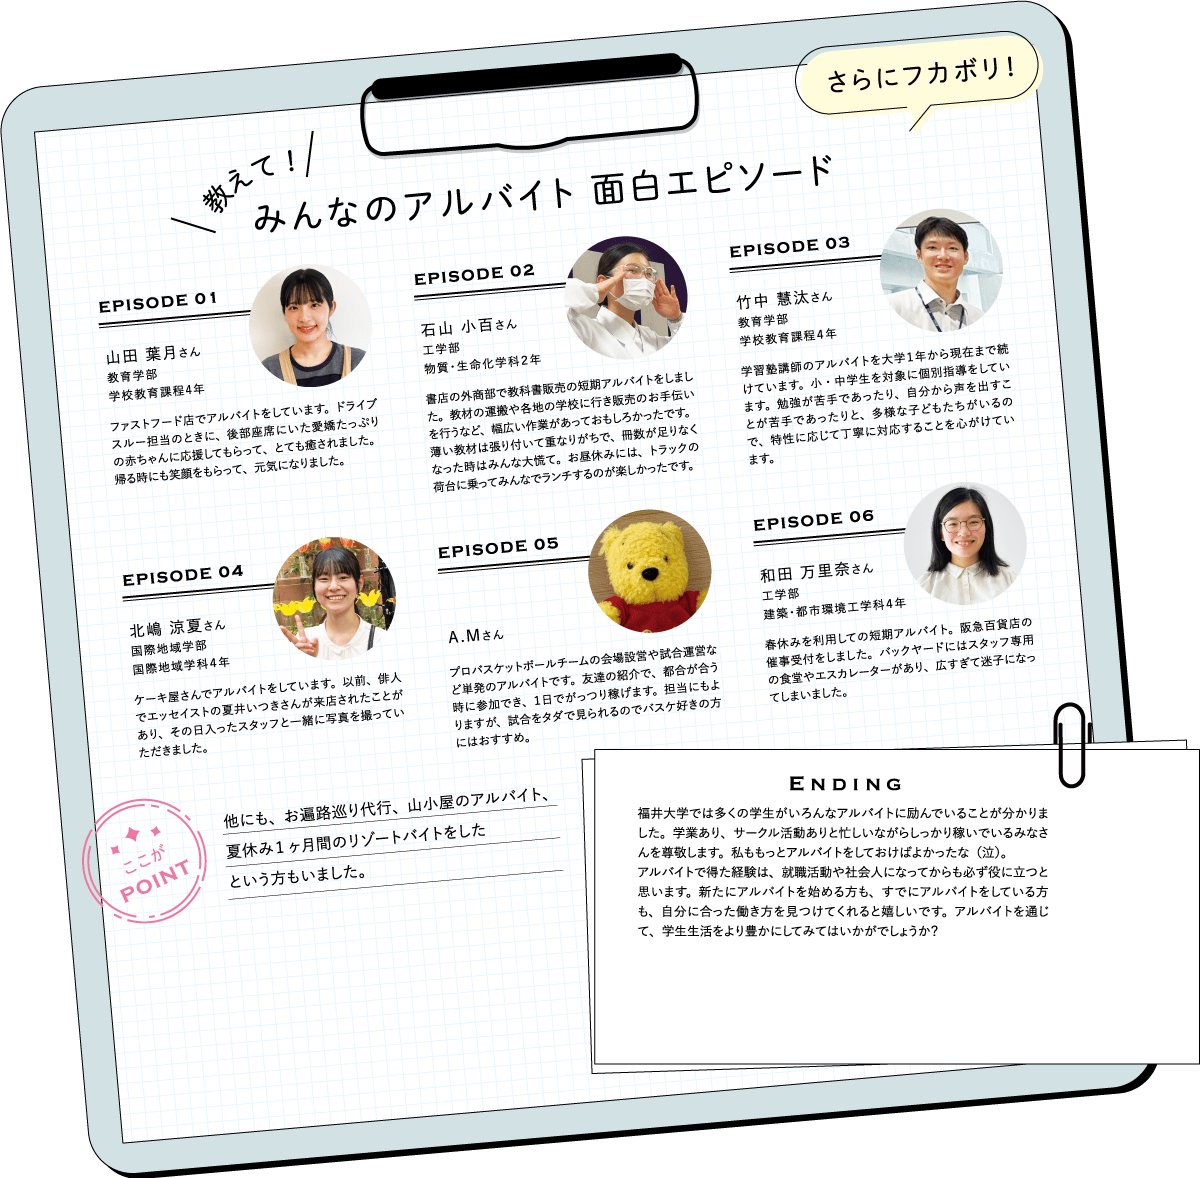 さらにフカボリ！
教えて！
みんなのアルバイト 面白エピソード
EPISODE 01
山田 葉月さん
教育学部
学校教育課程4年
ファストフード店でアルバイトをしています。ドライブ
スルー担当のときに、後部座席にいた愛嬌たっぷり
の赤ちゃんに応援してもらって、とても癒されました。
帰る時にも笑顔をもらって、元気になりました。
EPISODE 02
石山 小百さん
工学部
物質・生命化学科2年
書店の外商部で教科書販売の短期アルバイトをしまし
た。教材の運搬や各地の学校に行き販売のお手伝い
を行うなど、幅広い作業があっておもしろかったです。
薄い教材は張り付いて重なりがちで、冊数が足りなく
なった時はみんな大慌て。お昼休みには、トラックの
荷台に乗ってみんなでランチするのが楽しかったです。
EPISODE 03
竹中 慧汰さん
教育学部
学校教育課程4年
学習塾講師のアルバイトを大学1年から現在まで続
けています。小・中学生を対象に個別指導をしてい
ます。勉強が苦手であったり、自分から声を出すこ
とが苦手であったりと、多様な子どもたちがいるの
で、特性に応じて丁寧に対応することを心がけてい
ます。
EPISODE 04
北嶋 涼夏さん
国際地域学部
国際地域学科4年
ケーキ屋さんでアルバイトをしています。以前、俳人
でエッセイストの夏井いつきさんが来店されたことが
あり、その日入ったスタッフと一緒に写真を撮ってい
ただきました。
EPISODE 05
A.Mさん
プロバスケットボールチームの会場設営や試合運営な
ど単発のアルバイトです。友達の紹介で、都合が合う
時に参加でき、1日でがっつり稼げます。担当にもよ
りますが、試合をタダで見られるのでバスケ好きの方
にはおすすめ。
EPISODE 06
和田 万里奈さん
工学部
建築・都市環境工学科4年
春休みを利用しての短期アルバイト。阪急百貨店の
催事受付をしました。バックヤードにはスタッフ専用
の食堂やエスカレーターがあり、広すぎて迷子になっ
てしまいました。
ここが
POINT
他にも、お遍路巡り代行、山小屋のアルバイト、
夏休み1ヶ月間のリゾートバイトをした
という方もいました。
ENDING
福井大学では多くの学生がいろんなアルバイトに励んでいることが分かりま
した。学業あり、サークル活動ありと忙しいながらしっかり稼いでいるみなさ
んを尊敬します。私ももっとアルバイトをしておけばよかったな（泣）。
アルバイトで得た経験は、就職活動や社会人になってからも必ず役に立つと
思います。新たにアルバイトを始める方も、すでにアルバイトをしている方
も、自分に合った働き方を見つけてくれると嬉しいです。アルバイトを通じ
て、学生生活をより豊かにしてみてはいかがでしょうか？